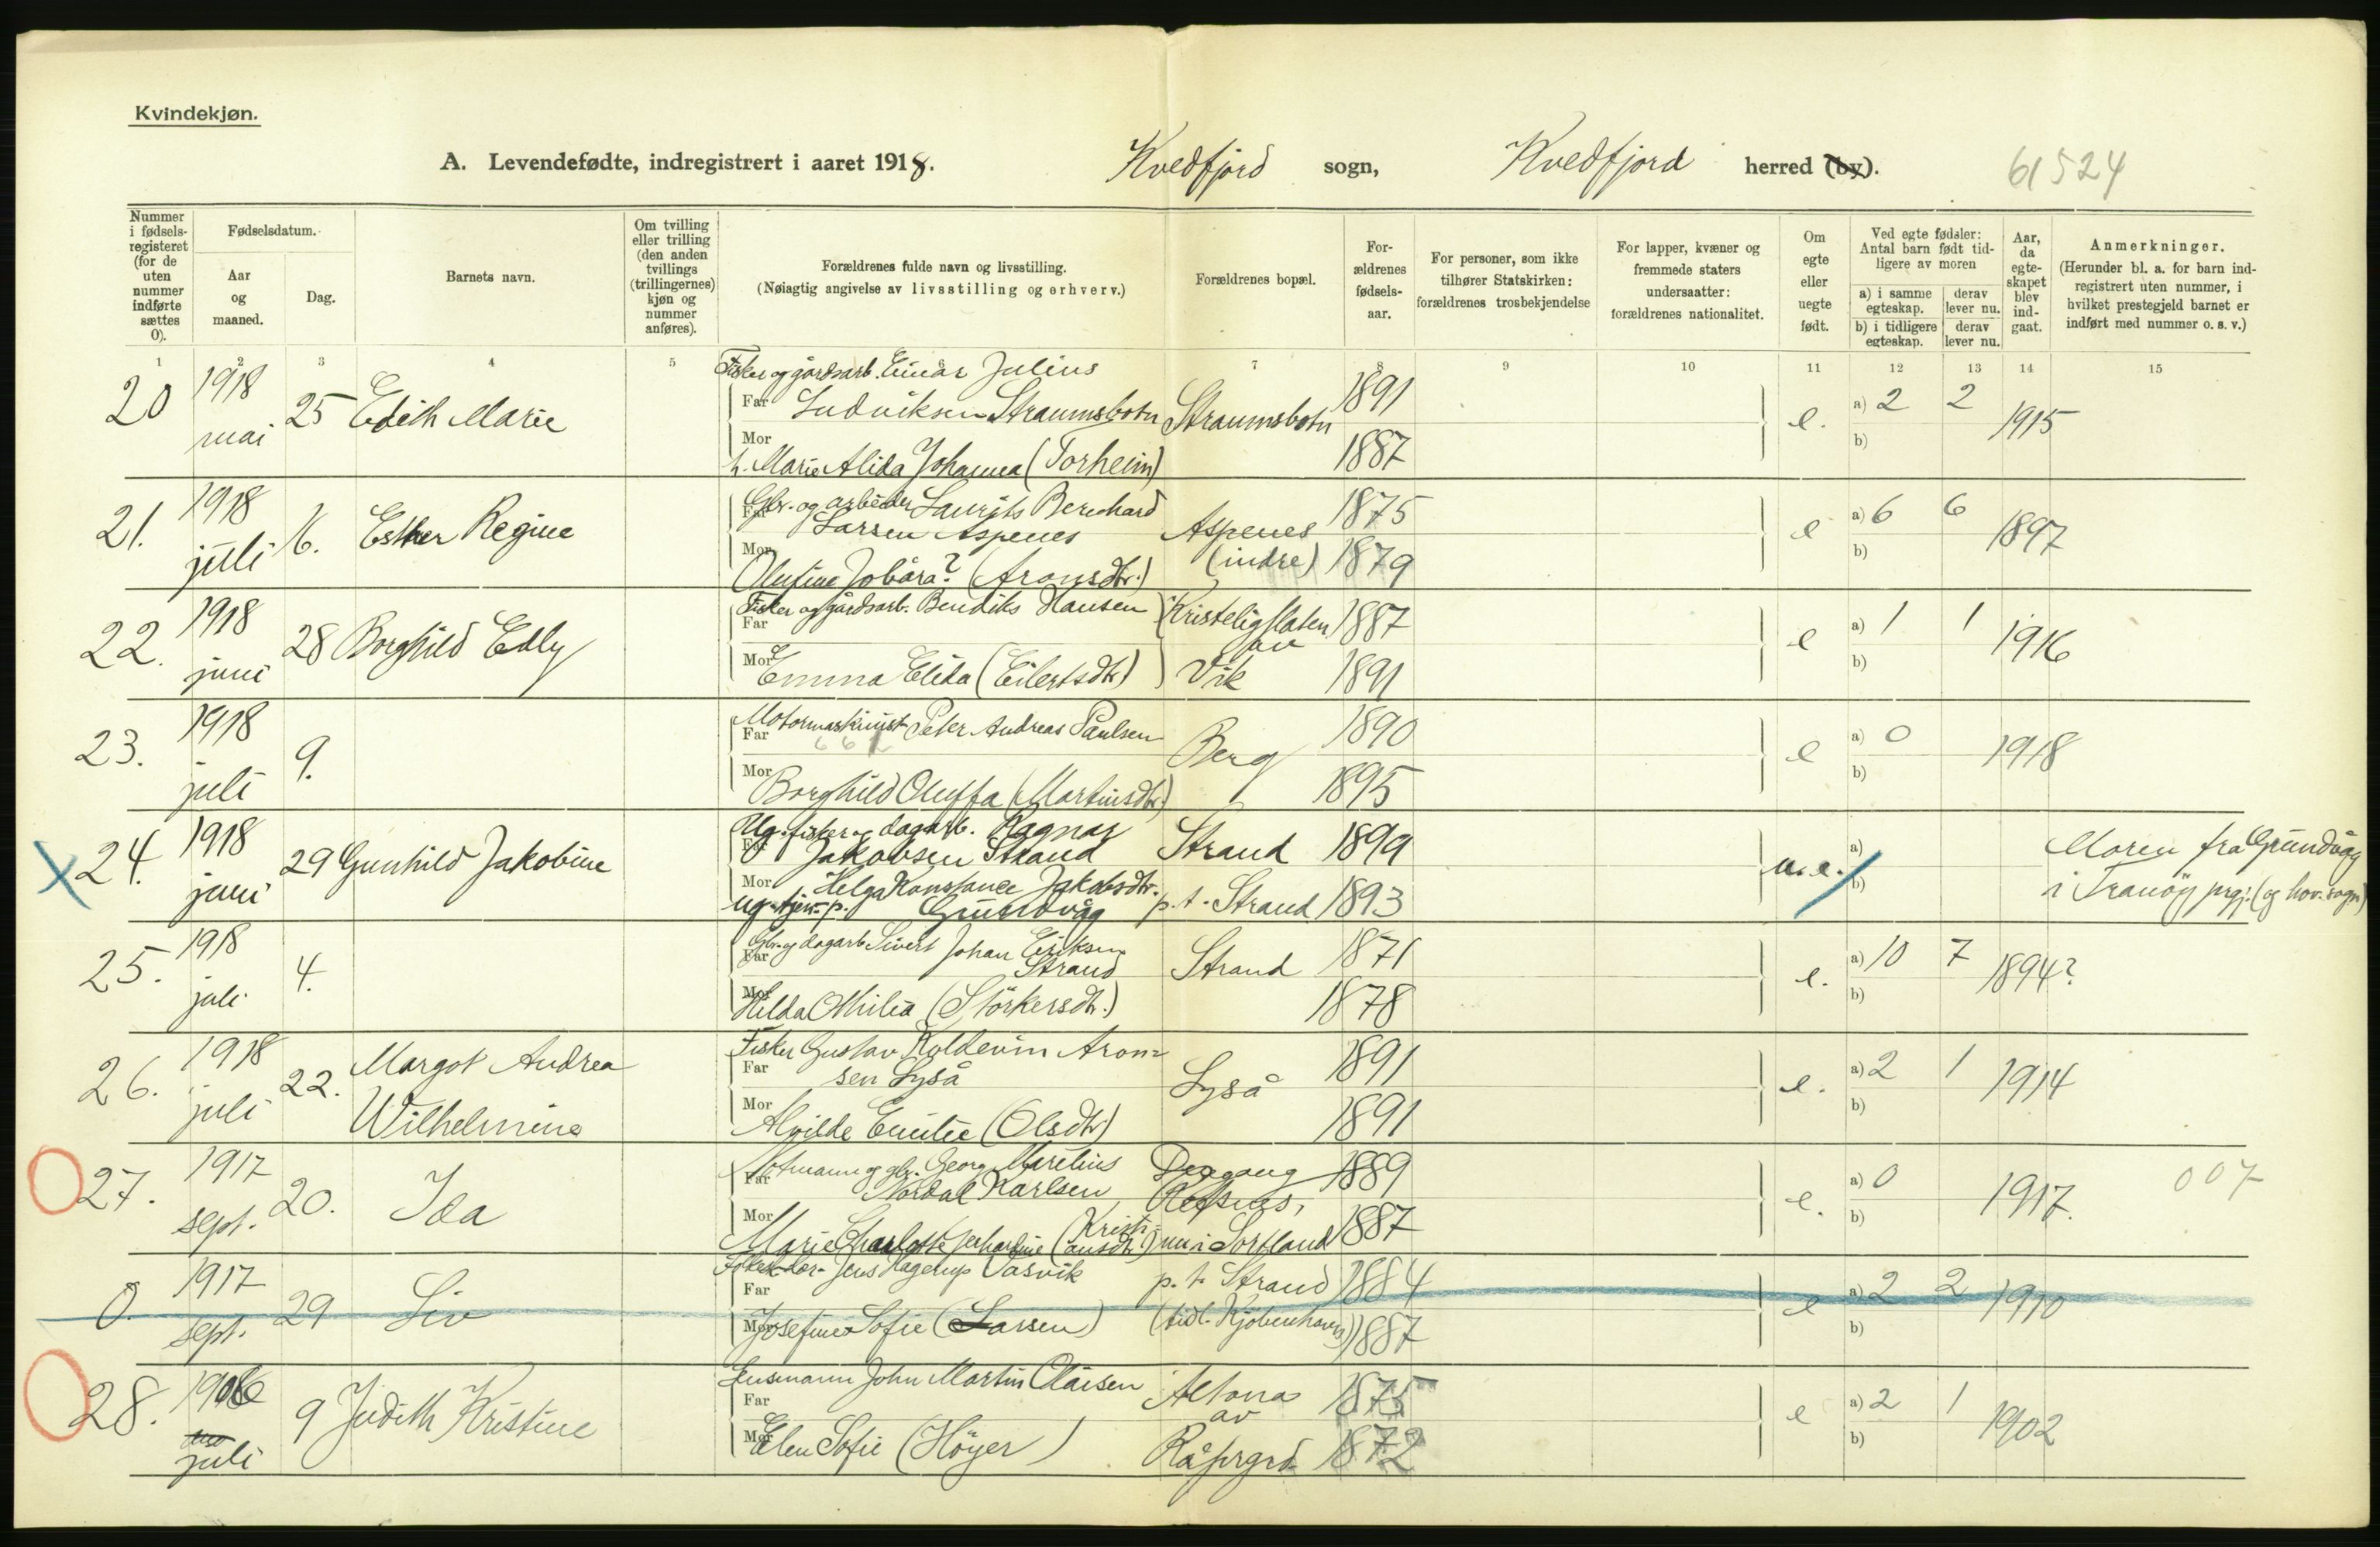 Kvindekjøn.
A. Levendefødte, indregistrert i aaret 1918. Kvedfjord sogn, Kvedfjord herred (by). 61524
Nummer i fødselsregisteret (for de uten nummer indførte sættes 0).
Fødselsdatum.
Aar og maaned.
Dag.
Barnets navn.
Om tvilling eller trilling (den anden tvillings (trillingernes) kjøn og nummer anføres).
Forældrenes fulde navn og livsstilling.
(Nøiagtig angivelse av livsstilling og erhverv.)
Forældrenes bopæl.
Forældrenes fødselsaar.
For personer, som ikke tilhører Statskirken: forældrenes trosbekjendelse
For lapper, kvæner og fremmede staters undersaatter: forældrenes nationalitet.
Om egte eller uegte født.
Ved egte fødsler: Antal barn født tidligere av moren
a) i samme egteskap. derav lever nu.
b) i tidligere egteskap. derav lever nu.
Aar, da egteskapet blev indgaat.
Anmerkninger.
(Herunder bl. a. for barn indregistrert uten nummer, i hvilket prestegjeld barnet er indført med nummer o. s. v.)
1 2 3 4 5 6 7 8 9 10 11 12 13 14 15
20 1918 mai 25 Edith Marie
Fisker og gårdsarb. Einar Julius
Far Ludviksen Straumsbotn Straumsbotn 1891
Mor h. Marie Alida Johanna (Torheim) 1887
e. a) 2 2 b) 1915
21. 1918 juli 6. Esther Regine
Far Gbr. og arbeider Laurits Bernhard
Larsen Aspenes Aspenes (indre) 1875
Mor Olufine Jobåra? (Aronsdtr.) 1879
e a) 6 6 b) 1897
22. 1918 juni 28 Borghild Edly
Far Fisker og gårdsarb. Bendiks Hansen Kristeligslaten av Vik 1887
Mor Emma Elida (Eilertsdtr) 1891
e a) 1 1 b) 1916
23. 1918 juli 9.
Far Motormaskinist Peter Andreas Paulsen Berg 1890
Mor Borghild Oluffa (Martinsdtr) 1895
e a) 0 b) 1918
24. 1918 juni 29 Gunhild Jakobine
Far Ug. fisker og dagarb. Ragnar
Jakobsen Strand Strand 1899
Mor Helga Konstance Jakobsdtr.
ug. tjen. p. Grundvåg p.t. Strand 1893
u.e. a) b)
Moren fra Grundvåg
i Tranöy prgj. (og hov. sogn)
25. 1918 juli 4.
Far Gbr. og dagarb. Sivert Johan Eriksen
Strand Strand 1871
Mor Hilda Othilia (Störkersdtr.) 1878
e. a) 10 7 b) 1894?
26. 1918 juli 22. Margot Andrea
Wilhelmine
Fisker Gustav Koldevin Aron=
Far sen Lyså Lyså 1891
Mor Alvilde Emilie (Olsdtr) 1891
e. a) 2 1 b) 1914
27. 1917 sept. 20. Ida
Far og gbr. Georg Marelius
Nordal Karlsen Refsnes, 1889
Mor Marie Charlotte Gerhardine (Kristi=
ansdtr.) nu i Sortland 1887
e. a) 0 b) 1917. 007
0. 1917 sept. 29 Liv
Far Jens Hagerup Vasvik p.t. Strand 1884
Mor Josefine Sofie (Larsen) (tidl. Kjöbenhavn) 1887
e a) 2 2 b) 1910
28. 1906 juli 9 Judith Kristine
Far Lensmann John Martin Olaisen Altona av 1875
Mor Elen Sofie (Höyer) 1872
e a) 2 1 b) 1902